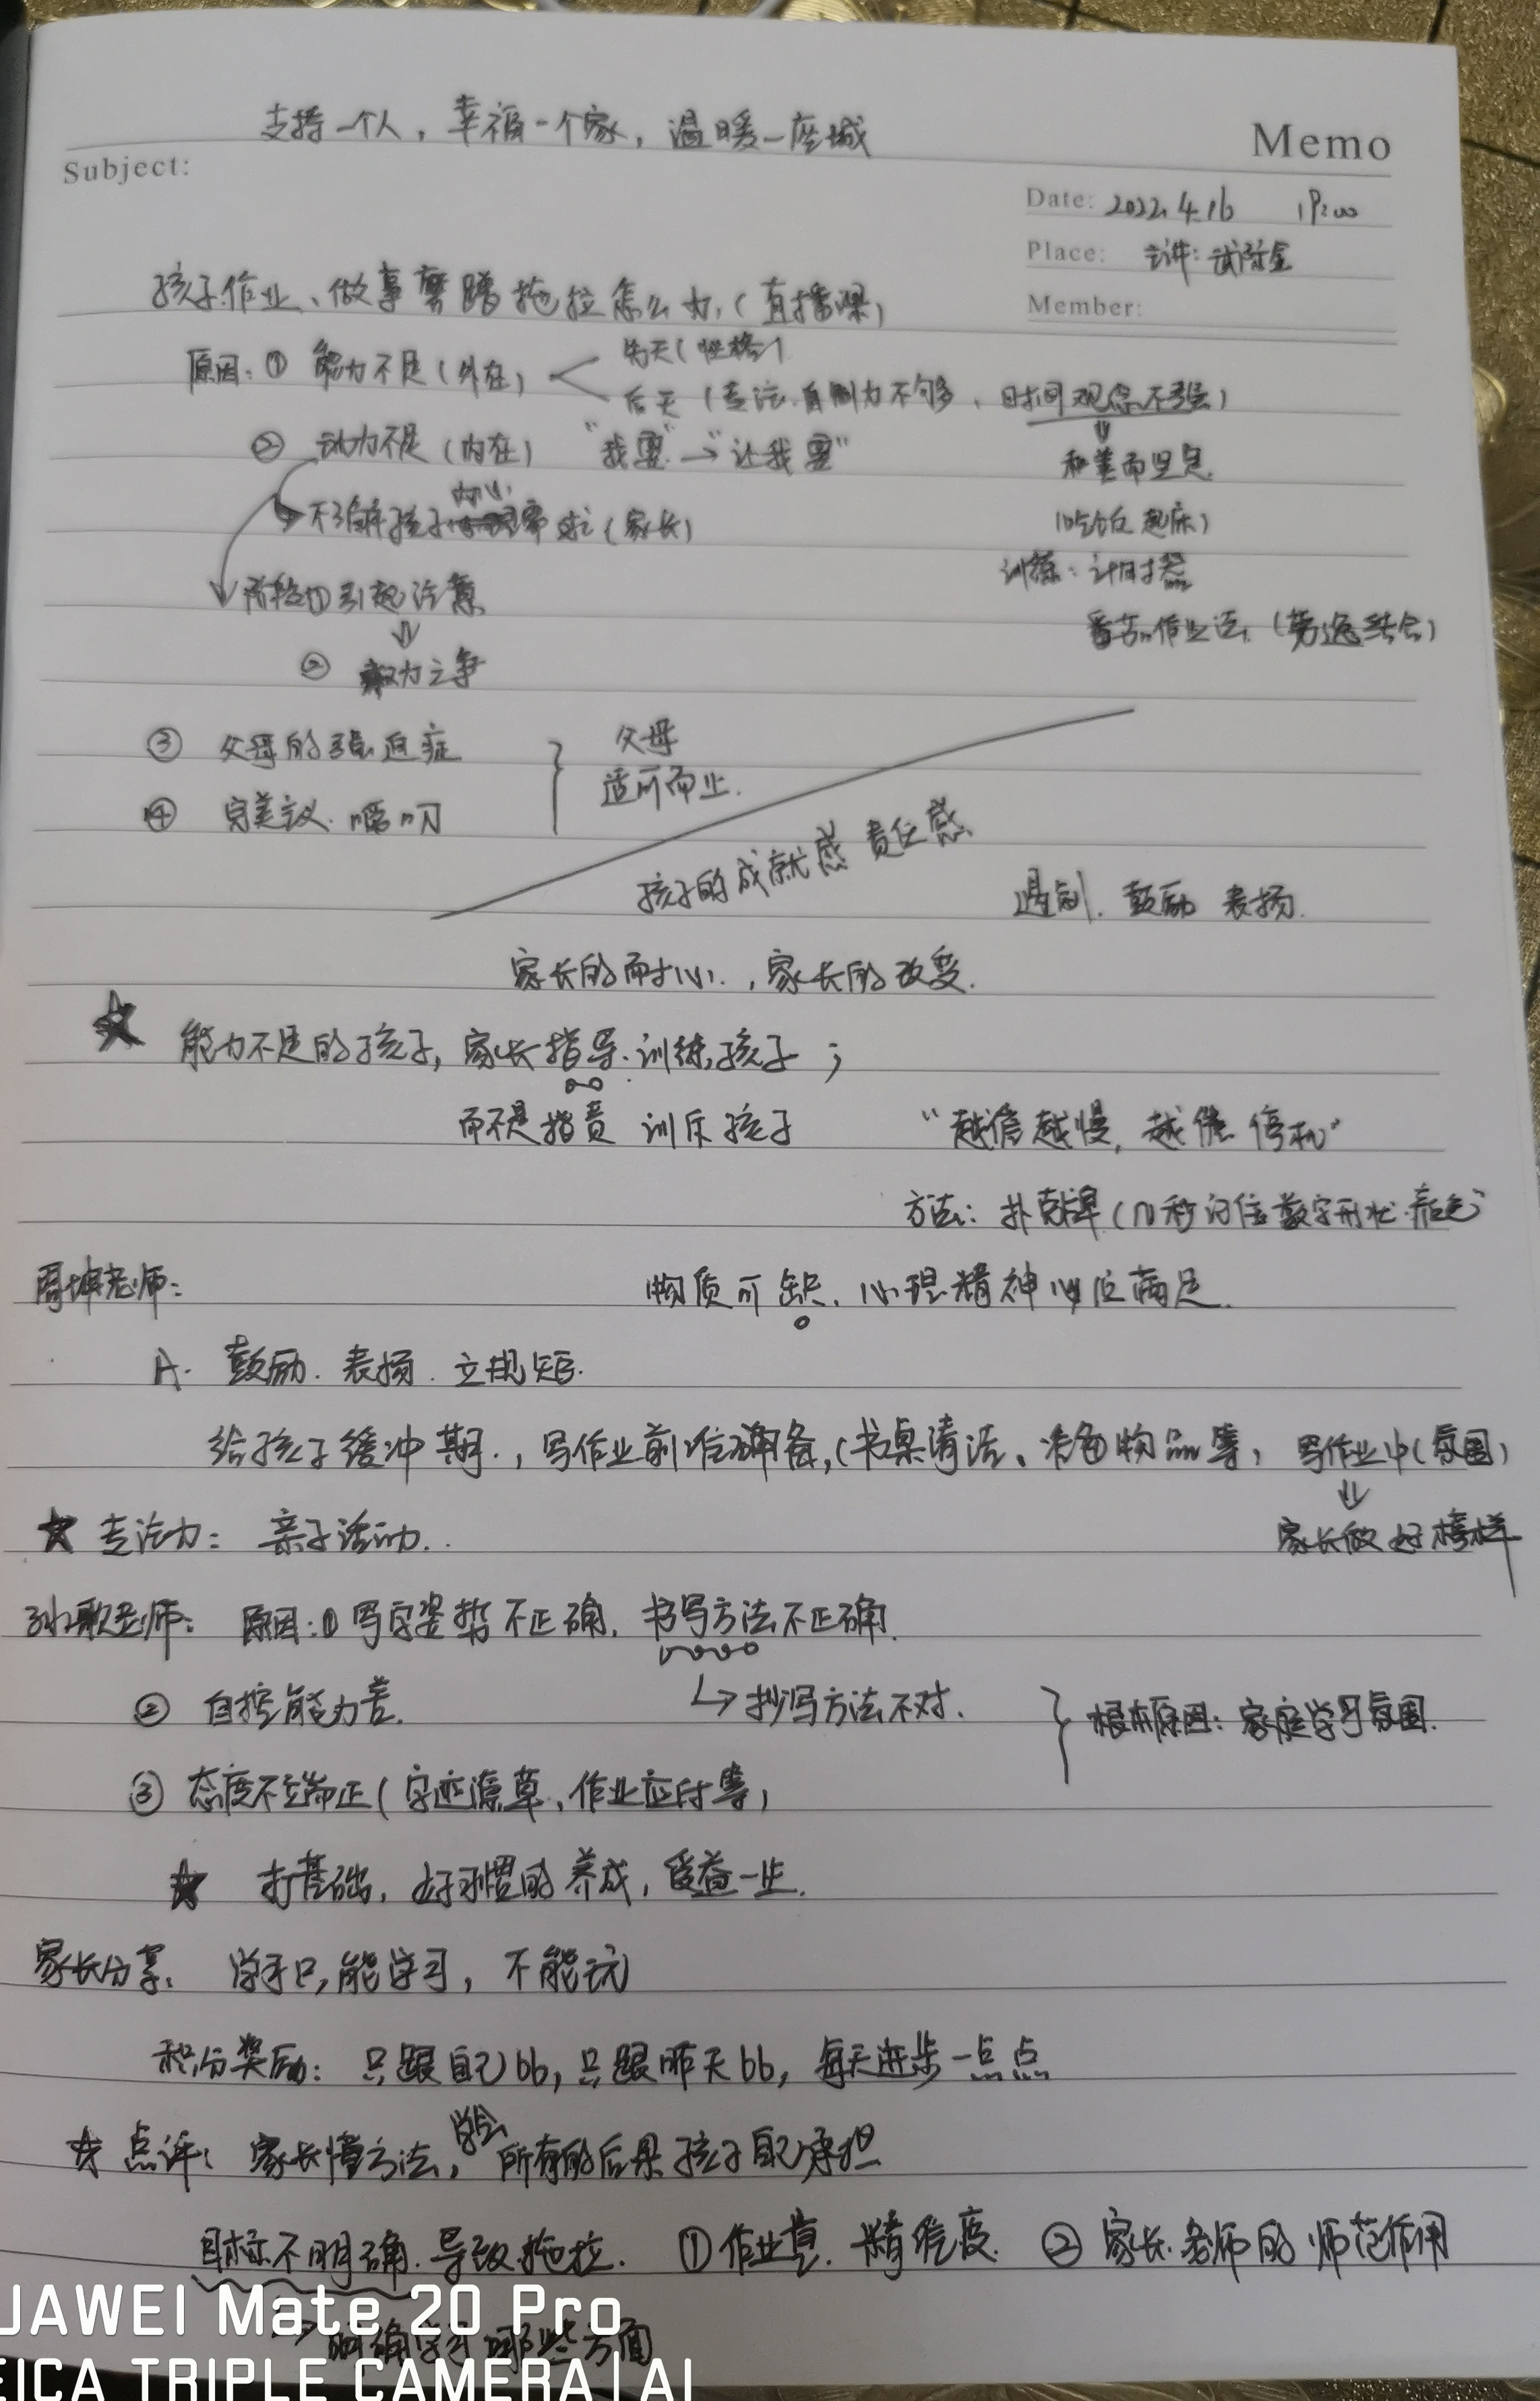 支持一个人，幸福一个家，温暖一座城
Memo
Subject:
Date: 2022.4.16 19:00
Place: 主讲:
Member:
孩子作业、做事磨蹭拖拉怎么办（直播课）
原因：① 能力不足（外在） 先天（性格）
后天（专注.自制力不够、时间观念不强）
② 动力不足（内在） “我要”→“让我要”
和善而坚定
不了解孩子内心需求（家长）
（吃饭 起床）
训练：计时器
阶段① 引起注意
番茄作业法（劳逸结合）
② 权力之争
③ 父母的强迫症
父母
适可而止.
④ 完美主义.唠叨
孩子的成就感 责任感
遏制. 鼓励 表扬.
家长的耐心，家长的改变.
能力不足的孩子，家长指导.训练孩子；
而不是指责 训斥孩子 “越催越慢，越催 停机”
方法：扑克牌（几秒记住数字形状.颜色）
老师：
物质可缺.心理精神必应满足.
A. 鼓励.表扬.立规矩.
给孩子缓冲期.，写作业前准备，（书桌清洁、准备物品等，写作业中（氛围）
家长做好榜样
☆ 专注力：亲子活动..
老师：原因：① 写字姿势不正确. 书写方法不正确.
② 自控能力差. → 抄写方法不对. 根本原因：家庭学习氛围.
③ 态度不端正（字迹潦草、作业应付等）
☆ 打基础，好习惯的养成，受益一生.
家长分享：学习只能学习，不能玩
积分奖励：只跟自己比，只跟昨天比，每天进步一点点
☆ 点评：家长懂方法，学会所有的后果孩子自己承担
目标不明确.导致拖拉. ① 作业量.精 ② 家长.老师的师范作用
→ 明确学习哪些方面
HUAWEI Mate 20 Pro
LEICA TRIPLE CAMERA | AI